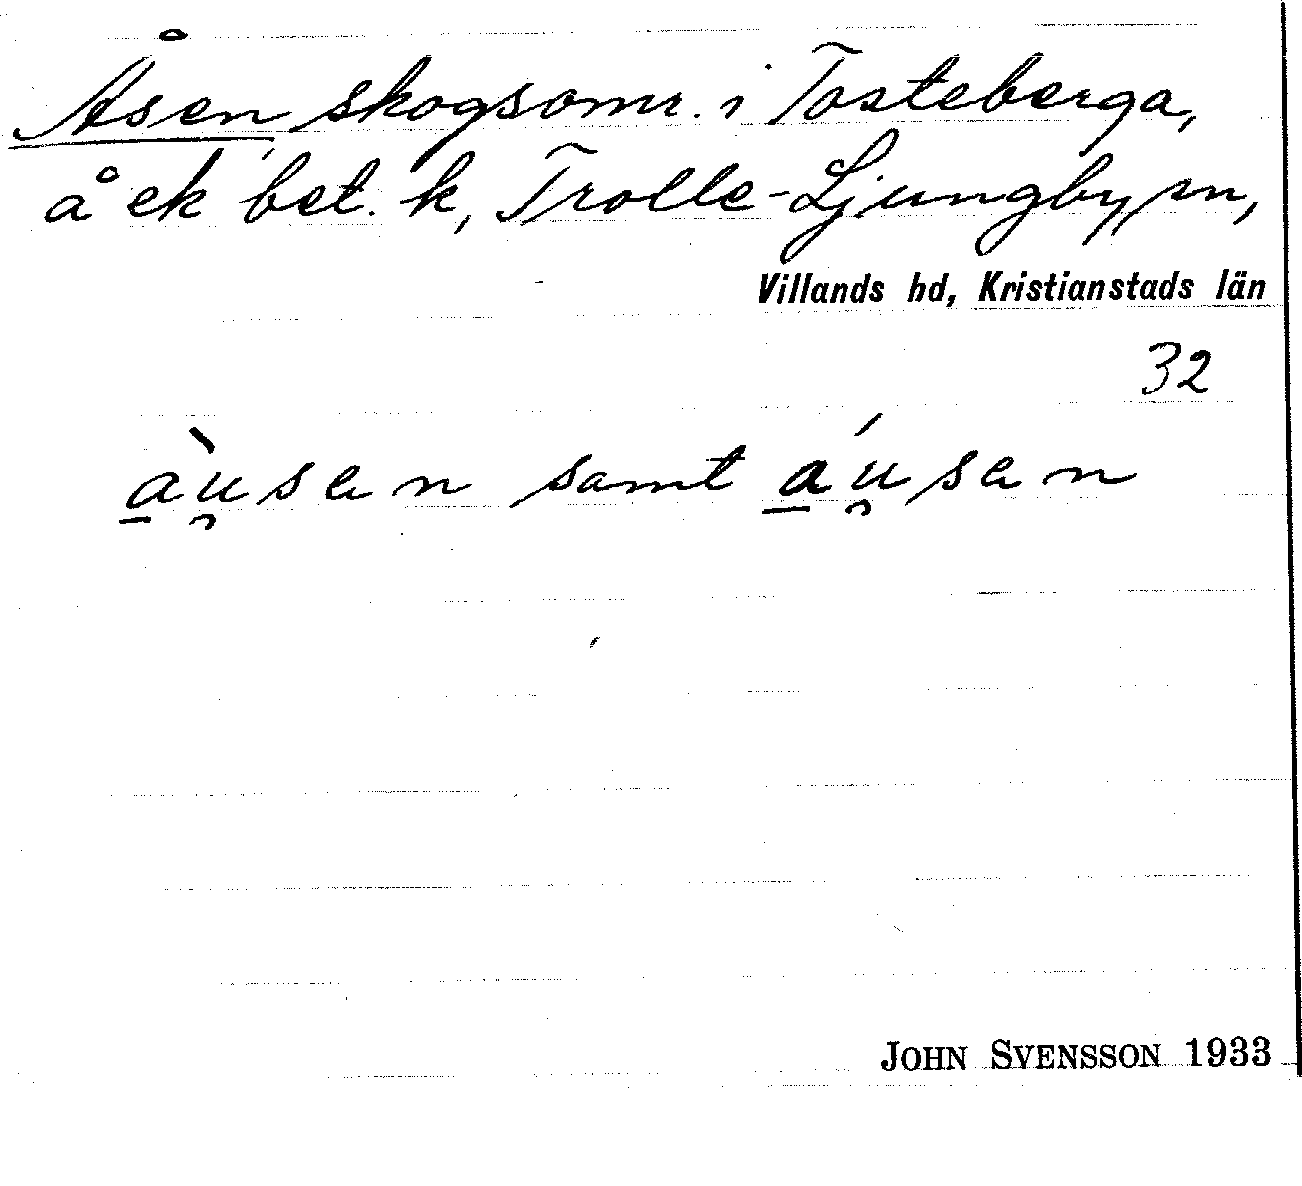 Åsen, skogsomr. i Tosteberga,
å ek bet. k, Trolle-Ljungby sn,
Villands hd, Kristianstads län
32
à̱u̯sen samt á̱u̯sen
JOHN SVENSSON 1933